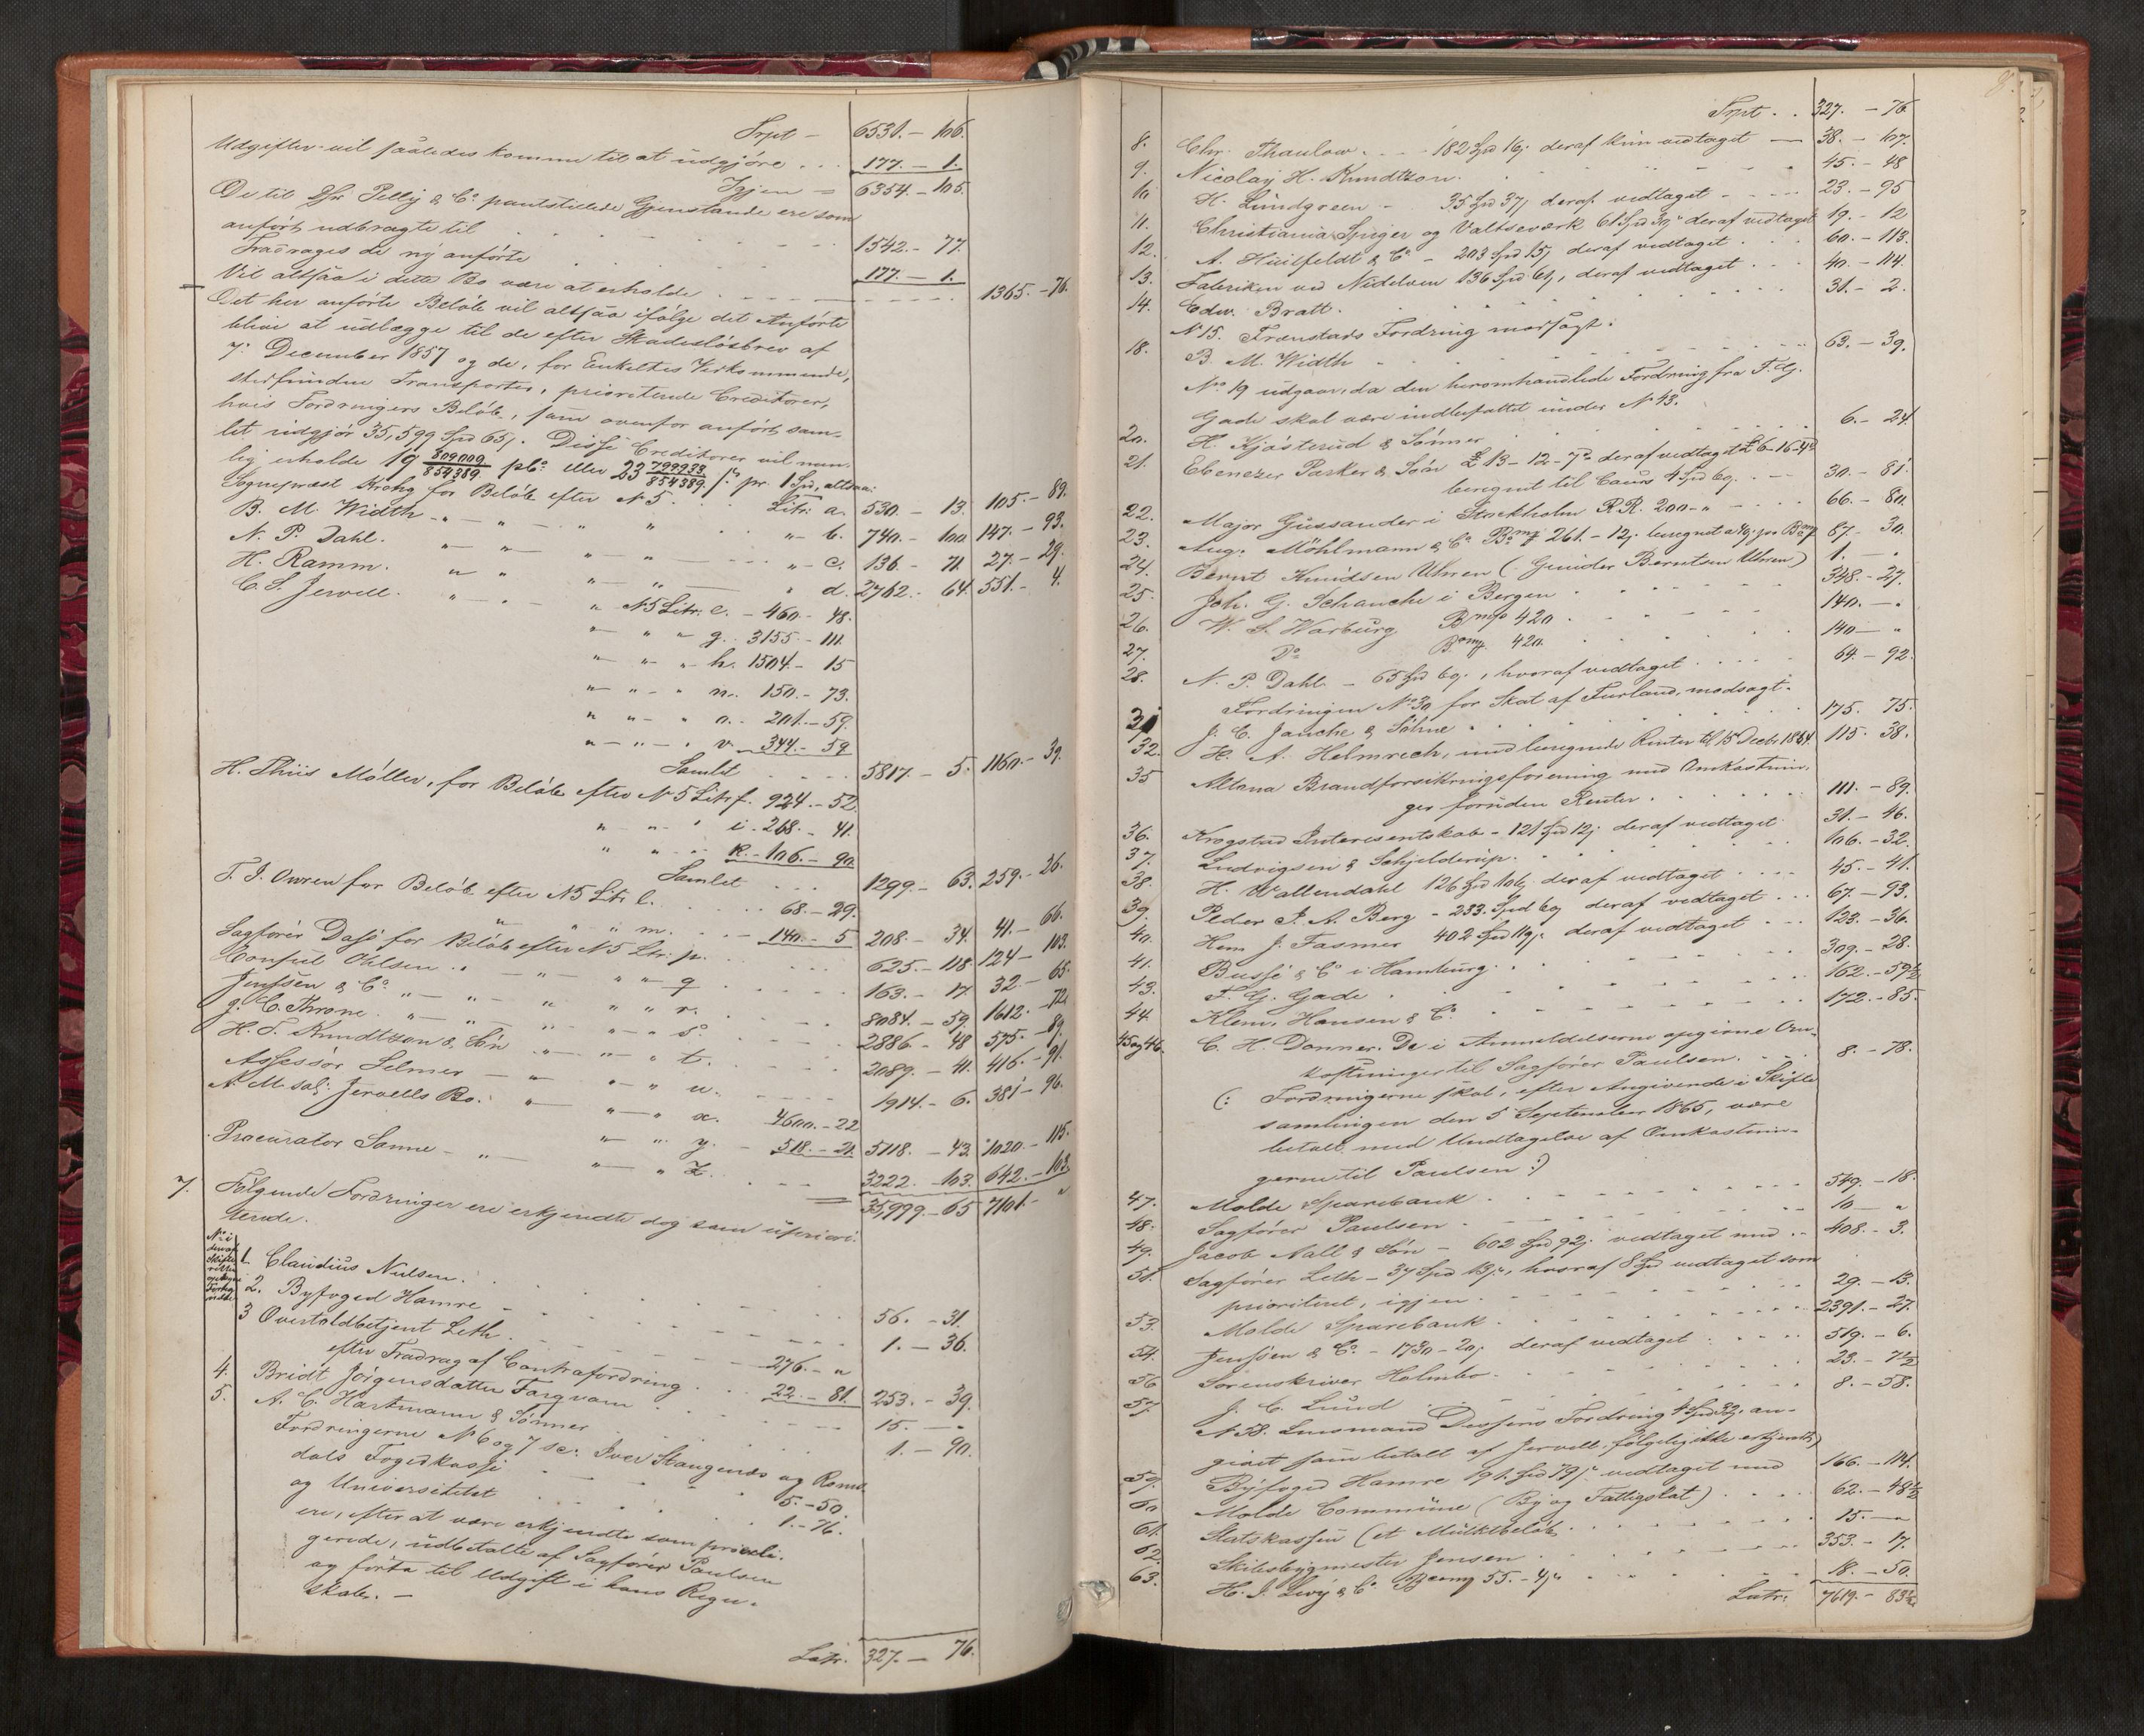 Trpt — 6531. — 106.
Udgifter vil således komme til at udgjøre . . . 177. — 1.
Igjen = 6354. — 105.
De til Pelly & Co. pantstillede Gjenstande ere som
anført udbragte til 1542. — 77.
Fradrages de ny anførte 177. — 1.
Vil altsaa i dette Bo være at erholde 1365. — 76.
Det her anførte Beløb vil altsaa ifølge det Anførte
blive at udlægge til de efter Skadesløsbrev af
7. December 1857 og de, for Enkeltes Vedkommende,
stedfundne Transporter, prioriterede Creditorer,
hvis Fordringers Beløb, som ovenfor anført, sam-
let udgjør 35,599 Spd 65 ʃ. Disse Creditorer vil nem-
lig erholde 19 809009/854389 pCt. eller 23 799933/854389 ʃ pr. 1 Spd, altsaa:
Sognepræst Krohg for Beløb efter N 5 . . . Litr. a. 530. — 13. 105. — 89.
B. M. Width — „ — „ — „ „ „ b. 740. — 100 147. — 93.
N. P. Dahl. „ — „ — „ — „ „ c. 136. — 71. 27. — 29.
H. Ramm. „ „ „ „ „ d. 2762. — 64. 551. — 4.
C. S. Jervell. „ „ „ N 5 Litr. e. — 460. — 48.
„ „ „ g. 3155. — 111.
„ „ „ h. 1504. — 15
„ „ „ n. 150. — 73.
„ „ „ o. 201. — 59.
„ „ „ v. 344. — 59
Samlet . . . 5817. — 5. 1160. — 39.
H. Thiis Møller, for Beløb efter N 5 Litr. f. 924. — 52.
„ „ „ i. 268. — 41.
„ „ „ k. — 106. — 90.
Samlet . . . 1299. — 63. 259. — 26.
T. J. Owren for Beløb efter N 5 Litr. l. . . . 68. — 29.
„ „ „ m. . . 140. — 5 208. — 34. 41. — 66.
Sagfører Dass for Beløb efter N 5 Litr. p. . . . 625. — 118. 124 — 103.
Consul Ohlsen . „ — „ — „ „ q . . . 163. — 17. 32. — 65.
Jenssen & Co. „ — „ — „ „ „ r. . . . 8084. — 59. 1612. — 72.
J. C. Throne. „ — „ — „ — „ s. . . . 2886. — 48 575. — 89.
H. T. Knudtzon & Søn „ — „ — „ t. . . . 2089. — 41. 416. — 91.
Assessor Selmer — „ — „ — „ u. . . . 1914. — 6. 381 — 96.
N. M. sal. Jervells Bo. „ — „ — „ x. 4600. — 22
„ „ y. — 518. — 21. 5118. — 43. 1020. — 115.
Procurator Sanne — „ — „ — „ z. . . . 3222. — 103. 642. — 103.
= 35,999. — 65 7101. — „
7. Følgende Fordringer ere erkjendte dog som upriori-
terede.
1. Claudius Nielsen. . . . 56. — 31.
2. Byfoged Hamre — . . . 1. — 36.
3 Overtoldbetjent Leth. . . . 276. — „
efter Fradrag af Contrafordring . . . 22. — 81. 253. — 39.
4. Bridt Jørgensdatter Fargvam . . . 15. — „
5. A. C. Hartmann & Sønner . . . 1. — 90.
Fordringerne N 6 og 7 sc: Iver Stangenæs og Roms-
dals Fogedkasse . . . 5. — 50.
og Universitetet . . . 1. — 76.
ere, efter at være erkjendte som privili-
gerede, udbetalte af Sagfører Paulsen
og førte til Udgift i hans Regn-
skab. —
Latr. 327. — 76.
Trpt. . . 327. — 76
8. Chr. Thaulow. . . . 182 Spd 16 ʃ deraf kun vedtaget — 38. — 107.
9. Nicolay H. Knudtzon. . . . 45. — 48
10. H. Lundgreen — 35 Spd 37 ʃ deraf vedtaget — . . . 23. — 95
11. Christiania Spiger og Valtseværk 61 Spd 30 ʃ deraf vedtaget 19. — 12
12. A. Huitfeldt & Co — 203 Spd 15 ʃ deraf vedtaget . . . 60. — 113.
13. Fabriken ved Nidelven 136 Spd 61 ʃ, deraf vedtaget . . . 40. — 114.
14. Edw. Bratt. . . . 31. — 2.
N 15. Frænstads Fordring modsagt.
18. B. M. Width — . . . 63. — 39.
No 19 udgaar, da den heromhandlede Fordring fra F. G.
Gade skal være indbefattet under N 43.
20. H. Kjøsterud & Sønner . . . 6. — 24.
21. Ebenezer Parker & Søn £ 13 — 12 — 7 d deraf vedtaget £ 6 — 16 — 4 d
beregnet til Cours 4 Spd 60. . . . 30. — 81.
22. Major Gussander i Stockholm RR. 200 — „ — . . . 66. — 80.
23. Aug. Möhlmann & Co Bomf 261. — 12 ʃ beregnet a 40 ʃ pr Bomf 87. — 30.
24. Bernt Knudsen Uhren (Gunder Berntsen Uhren) 1. — „
25. Joh. G. Schanche i Bergen . . . 348. — 27.
26. W. S. Warburg Bomf 420. . . . 140. — „
27. Do Bomf. 420. . . . 140 — „
28. N. P. Dahl — 65 Spd 60., hvoraf vedtaget . . . 64. — 92.
Fordringen No 30 for Skat af Furland, modsagt.
31 J. C. Jauche & Söhne . . . 175. 75.
32. H. A. Helmrech, med beregnede Renter til 15 Decbr 1864. 115. 38.
35 Altona Brandforsikringsforening med Omkostnin-
ger foruden Renter . . . 111. — 89.
36. Krogstad Interesentskab — 121 Spd 12 ʃ deraf vedtaget 31. — 46.
37. Ludvigsen & Schjelderup. . . . 106. — 32.
38. H. Wallendahl 126 Spd 106 ʃ deraf vedtaget . . . 45. — 41.
39. Peder P. A. Berg — 233. Spd 60 deraf vedtaget . . . 67. — 93.
40. Herm J. Fasmer 402 Spd 119 ʃ deraf vedtaget . . . 123. — 36.
41. Busse & Co i Hamburg. . . . 309. — 28.
43. F. G. Gade . . . 162. — 59½
44 Klem, Hansen & Co . . . 172. — 85.
45 og 46. C. H. Donner. De i Anmeldelserne opgivne Om-
kostninger til Sagfører Paulsen. . . . 8. — 78.
(: Fordringerne skal, efter Angivende i Skifte
samlingen den 5 September 1865, være
betalt med Undtagelse af Omkostnin-
gerne til Paulsen :)
47. Molde Sparebank . . . 549. — 18.
48. Sagfører Paulsen . . . 10 — „
49. Jacob Nall & Søn — 602 Spd 92 ʃ vedtaget med . . 408. — 3.
51. Sagfører Leth — 37 Spd 13 ʃ, hvoraf 8 Spd vedtaget som
prioriteret, igjen . . . 29. — 13.
53. Molde Sparebank . . . 2391. — 27.
54. Jenssen & Co. — 1730 — 20 ʃ deraf vedtaget . . . 519. — 6.
56 Sorenskriver Holmboe . . . 23. — 7½
57. J. C. Lund . . . 8. — 58.
N 58. Lensmand Dessens Fordring 4 Spd 32 ʃ, an-
givet som betalt af Jervell, følgelig ikke erkjendt,
59. Byfoged Hamre 191. Spd 79 ʃ vedtaget med 166. — 114.
60 Molde Commüne (By og Fattigskat) . . . 62. — 48½
61. Statskassen (et Mulktbeløb . . . 15. — „
62. Skibsbygmester Jensen . . . 353. — 17.
63. H. J. Levy & Co Bcomf 55. — 4 ʃ „ . . . 18. — 50.
Latr. 7619. — 83½